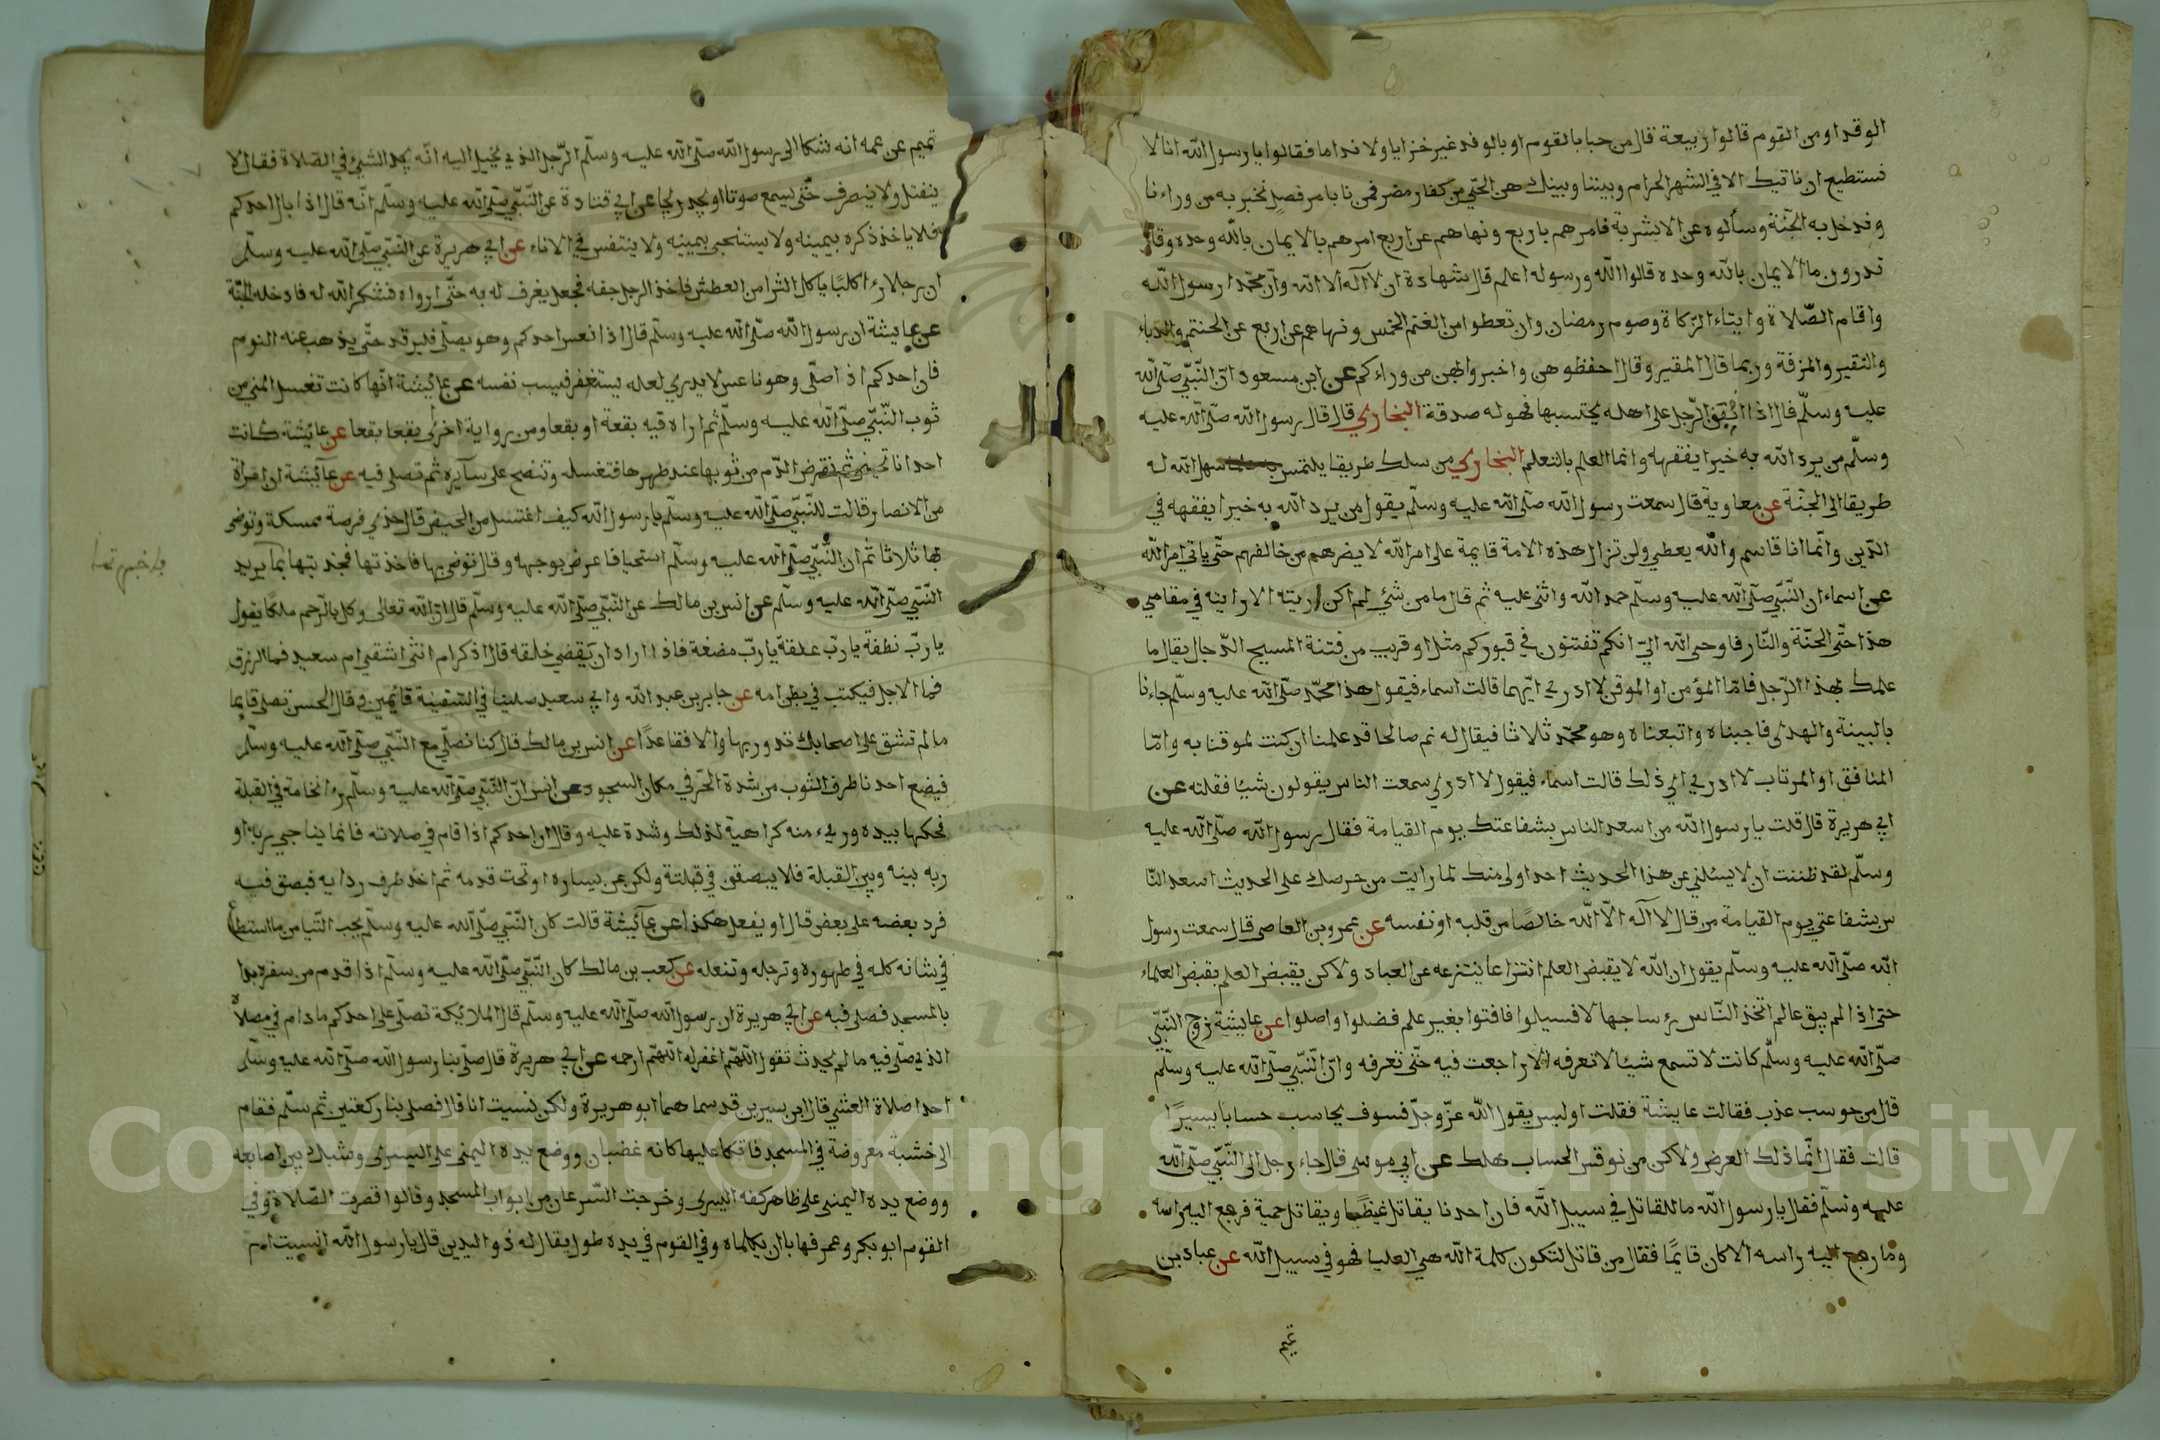 الوفد او من القوم قالوا ربيعة قال مرحبا بالقوم او بالوفد غير خزايا ولا نداما فقالوا يا رسول الله انا لا
نستطيع ان ناتيك الا في الشهر الحرام وبيننا وبينك هى الحي من كفار مضر فمرنا بامر فصل نخبر به من وراءنا
وندخل به الجنة وسألوه عن الاشربة فامرهم باربع ونهاهم عن اربع امرهم بالايمان بالله وحده وقال
تدرون ما الايمان بالله وحده قالوا الله ورسوله اعلم قال شهادة ان لا اله الا الله وان محمدا رسول الله
واقام الصلاة وايتاء الزكاة وصوم رمضان وان تعطوا من الغنم الخمس ونهاهم عن اربع عن الحنتم والدباء
والنقير والمزفة وربما قال المقير وقال احفظوهن واخبروا بهن من وراءكم عن ابن مسعود ان النبي صلى الله
عليه وسلم قال اذا انفق الرجل على اهله يحتسبها فهو له صدقة البخاري قال قال رسول الله صلى الله عليه
وسلم من يرد الله به خيرا يفقهه وانما العلم بالتعلم البخاري من سلك طريقا يلتمس سهل الله له
طريقا الى الجنة عن معاوية قال سمعت رسول الله صلى الله عليه وسلم يقول من يرد الله به خيرا يفقهه في
الدين وانما انا قاسم والله يعطي ولن تزال هذه الامة قايمة على امر الله لا يضرهم من خالفهم حتى ياتي امر الله
عن اسماء ان النبي صلى الله عليه وسلم حمد الله واثنى عليه ثم قال ما من شئ لم اكن اريته الا رايته في مقامي
هذا حتى الجنة والنار فاوحى الله الي انكم تفتنون في قبوركم مثل او قريب من فتنة المسيح الدجال يقال ما
علمك بهذا الرجل فاما المؤمن او الموقن لا ادري ايهما قالت اسماء فيقول هذا محمد صلى الله عليه وسلم جاءنا
بالبينة والهدى فاجبناه واتبعناه وهو محمد ثلاثا فيقال له نم صالحا قد علمنا ان كنت لموقنا به واما
المنافق او المرتاب لا ادري اي ذلك قالت اسماء فيقول لا ادري سمعت الناس يقولون شيئا فقلته عن
ابي هريرة قال قلت يا رسول الله من اسعد الناس بشفاعتك يوم القيامة فقال رسول الله صلى الله عليه
وسلم لقد ظننت ان لا يسئلني عن هذا الحديث احد اولى منك لما رايت من حرصك على الحديث اسعد النا
س بشفاعتي يوم القيامة من قال لا اله الا الله خالصا من قلبه او نفسه عن عمرو بن العاصي قال سمعت رسول
الله صلى الله عليه وسلم يقول ان الله لا يقبض العلم انتزاعا ينتزعه عن العباد ولاكن يقبض العلم بقبض العلماء
حتى اذا لم يبق عالم اتخذ الناس رءسا جهالا فسيلوا فافتوا بغير علم فضلوا واضلوا عن عايشة زوج النبي
صلى الله عليه وسلم كانت لا تسمع شيئا لا تعرفه الا راجعت فيه حتى تعرفه وان النبي صلى الله عليه وسلم
قال من حوسب عذب فقالت عايشة فقلت اوليس يقول الله عز وجل فسوف يحاسب حسابا يسيرا
قالت فقال انما ذلك العرض ولاكن من نوقس الحساب هلك عن ابي موسى قال جاء رجل الى النبي صلى الله
عليه وسلم فقال يا رسول الله ما القاتل في سبيل الله فان احدنا يقاتل غيظا ويقاتل حمية فرفع اليه راسه
وما رفع اليه راسه الا كان قايما فقال من قاتل لتكون كلمة الله هي العليا فهو في سبيل الله عن عباد بن
تميم
تميم عن عمه انه شكا الى رسول الله صلى الله عليه وسلم الرجل الذي يخيل اليه انه يجد الشئ في الصلاة فقال لا
ينفتل ولا ينصرف حتى يسمع صوتا او يجد ريحا عن ابي قتادة عن النبي صلى الله عليه وسلم انه قال اذا بال احدكم
فلا ياخذ ذكره بيمينه ولا يستنجي بيمينه ولا يتنفس في الاناء عن ابي هريرة عن النبي صلى الله عليه وسلم
ان رجلا رءا كلبا ياكل الثرا من العطش فاخذ الرجل خفه فجعل يغرف له به حتى ارواه فشكر الله له فادخله الجنة
عن عايشة ان رسول الله صلى الله عليه وسلم قال اذا نعس احدكم وهو يصلي فليرقد حتى يذهب عنه النوم
فان احدكم اذا صلى وهو ناعس لا يدري لعله يستغفر فيسب نفسه عن عائيشة انها كانت تغسل المني من
ثوب النبي صلى الله عليه وسلم ثم اراه فيه بقعة او بقعا ومن رواية اخرى بقعا بقعا عن عائشة كانت
احدانا تحيض ثم تقرض الدم من ثوبها عند طهرها فتغسله وتنضح على سآيره ثم تصلي فيه عن عآئيشة ان امرأة
من الانصار قالت للنبي صلى الله عليه وسلم يا رسول الله كيف اغتسل من الحيض قال خذي فرصة ممسكة وتوضئ
بها ثلاثا ثم ان النبي صلى الله عليه وسلم استحيا فاعرض بوجهه وقال توضي بها فاخذتها فجذبتها بما يريد
النبي صلى الله عليه وسلم عن انس بن مالك عن النبي صلى الله عليه وسلم قال ان الله تعالى وكل بالرحم ملكا يقول
يا رب نطفة يا رب علقة يا رب مضغة فاذا اراد ان يقضي خلقه قال اذكر ام انثى اشقي ام سعيد فما الرزق
فما الاجل فيكتب في بطن امه عن جابر بن عبد الله وابي سعيد صلينا في السفينة قائمين وقال الحسن تصلي قايما
ما لم تشق على اصحابك تدور بها والا فقاعدا عن انس بن مالك قال كنا نصلي مع النبي صلى الله عليه وسلم
فيضع احدنا طرف الثوب من شدة الحر في مكان السجود عن انس ان النبي صلى الله عليه وسلم رءا نخامة في القبلة
فحكها بيده وريء منه كراهية لذلك وشدة عليه وقال ان احدكم اذا قام في صلاته فانما يناجي ربه او
ربه بينه وبين القبلة فلا يبصقن في قبلته ولكن عن يساره او تحت قدمه ثم اخذ طرف ردايه فبصق فيه
فرد بعضه على بعض قال او يفعل هكذا عن عآئيشة قالت كان النبي صلى الله عليه وسلم يحب التيامن ما استطاع
في شانه كله في طهوره وترجله وتنعله عن كعب بن مالك كان النبي صلى الله عليه وسلم اذا قدم من سفره بدا
بالمسجد فصلى فيه عن ابي هريرة ان رسول الله صلى الله عليه وسلم قال الملائيكة تصلي على احدكم ما دام في مصلاه
الذي صلى فيه ما لم يحدث تقول اللهم اغفر له اللهم ارحمه عن ابي هريرة قال صلى بنا رسول الله صلى الله عليه وسلم
احدا صلاة العشي قال ابن سيرين قد سماها ابو هريرة ولكن نسيت انا قال فصلى بنا ركعتين ثم سلم فقام
الى خشبة معروضة في المسجد فاتكا عليها كانه غضبان ووضع يده اليمنى على اليسرى وشبك بين اصابعه
ووضع يده اليمنى على ظاهر كفه اليسرى وخرجت السرعان من ابواب المسجد وقالوا قصرت الصلاة وفي
القوم ابو بكر وعمر فهابا ان يكلماه وفي القوم في يده طول يقال له ذو اليدين قال يا رسول الله انسيت ام
Copyright © King Saud University